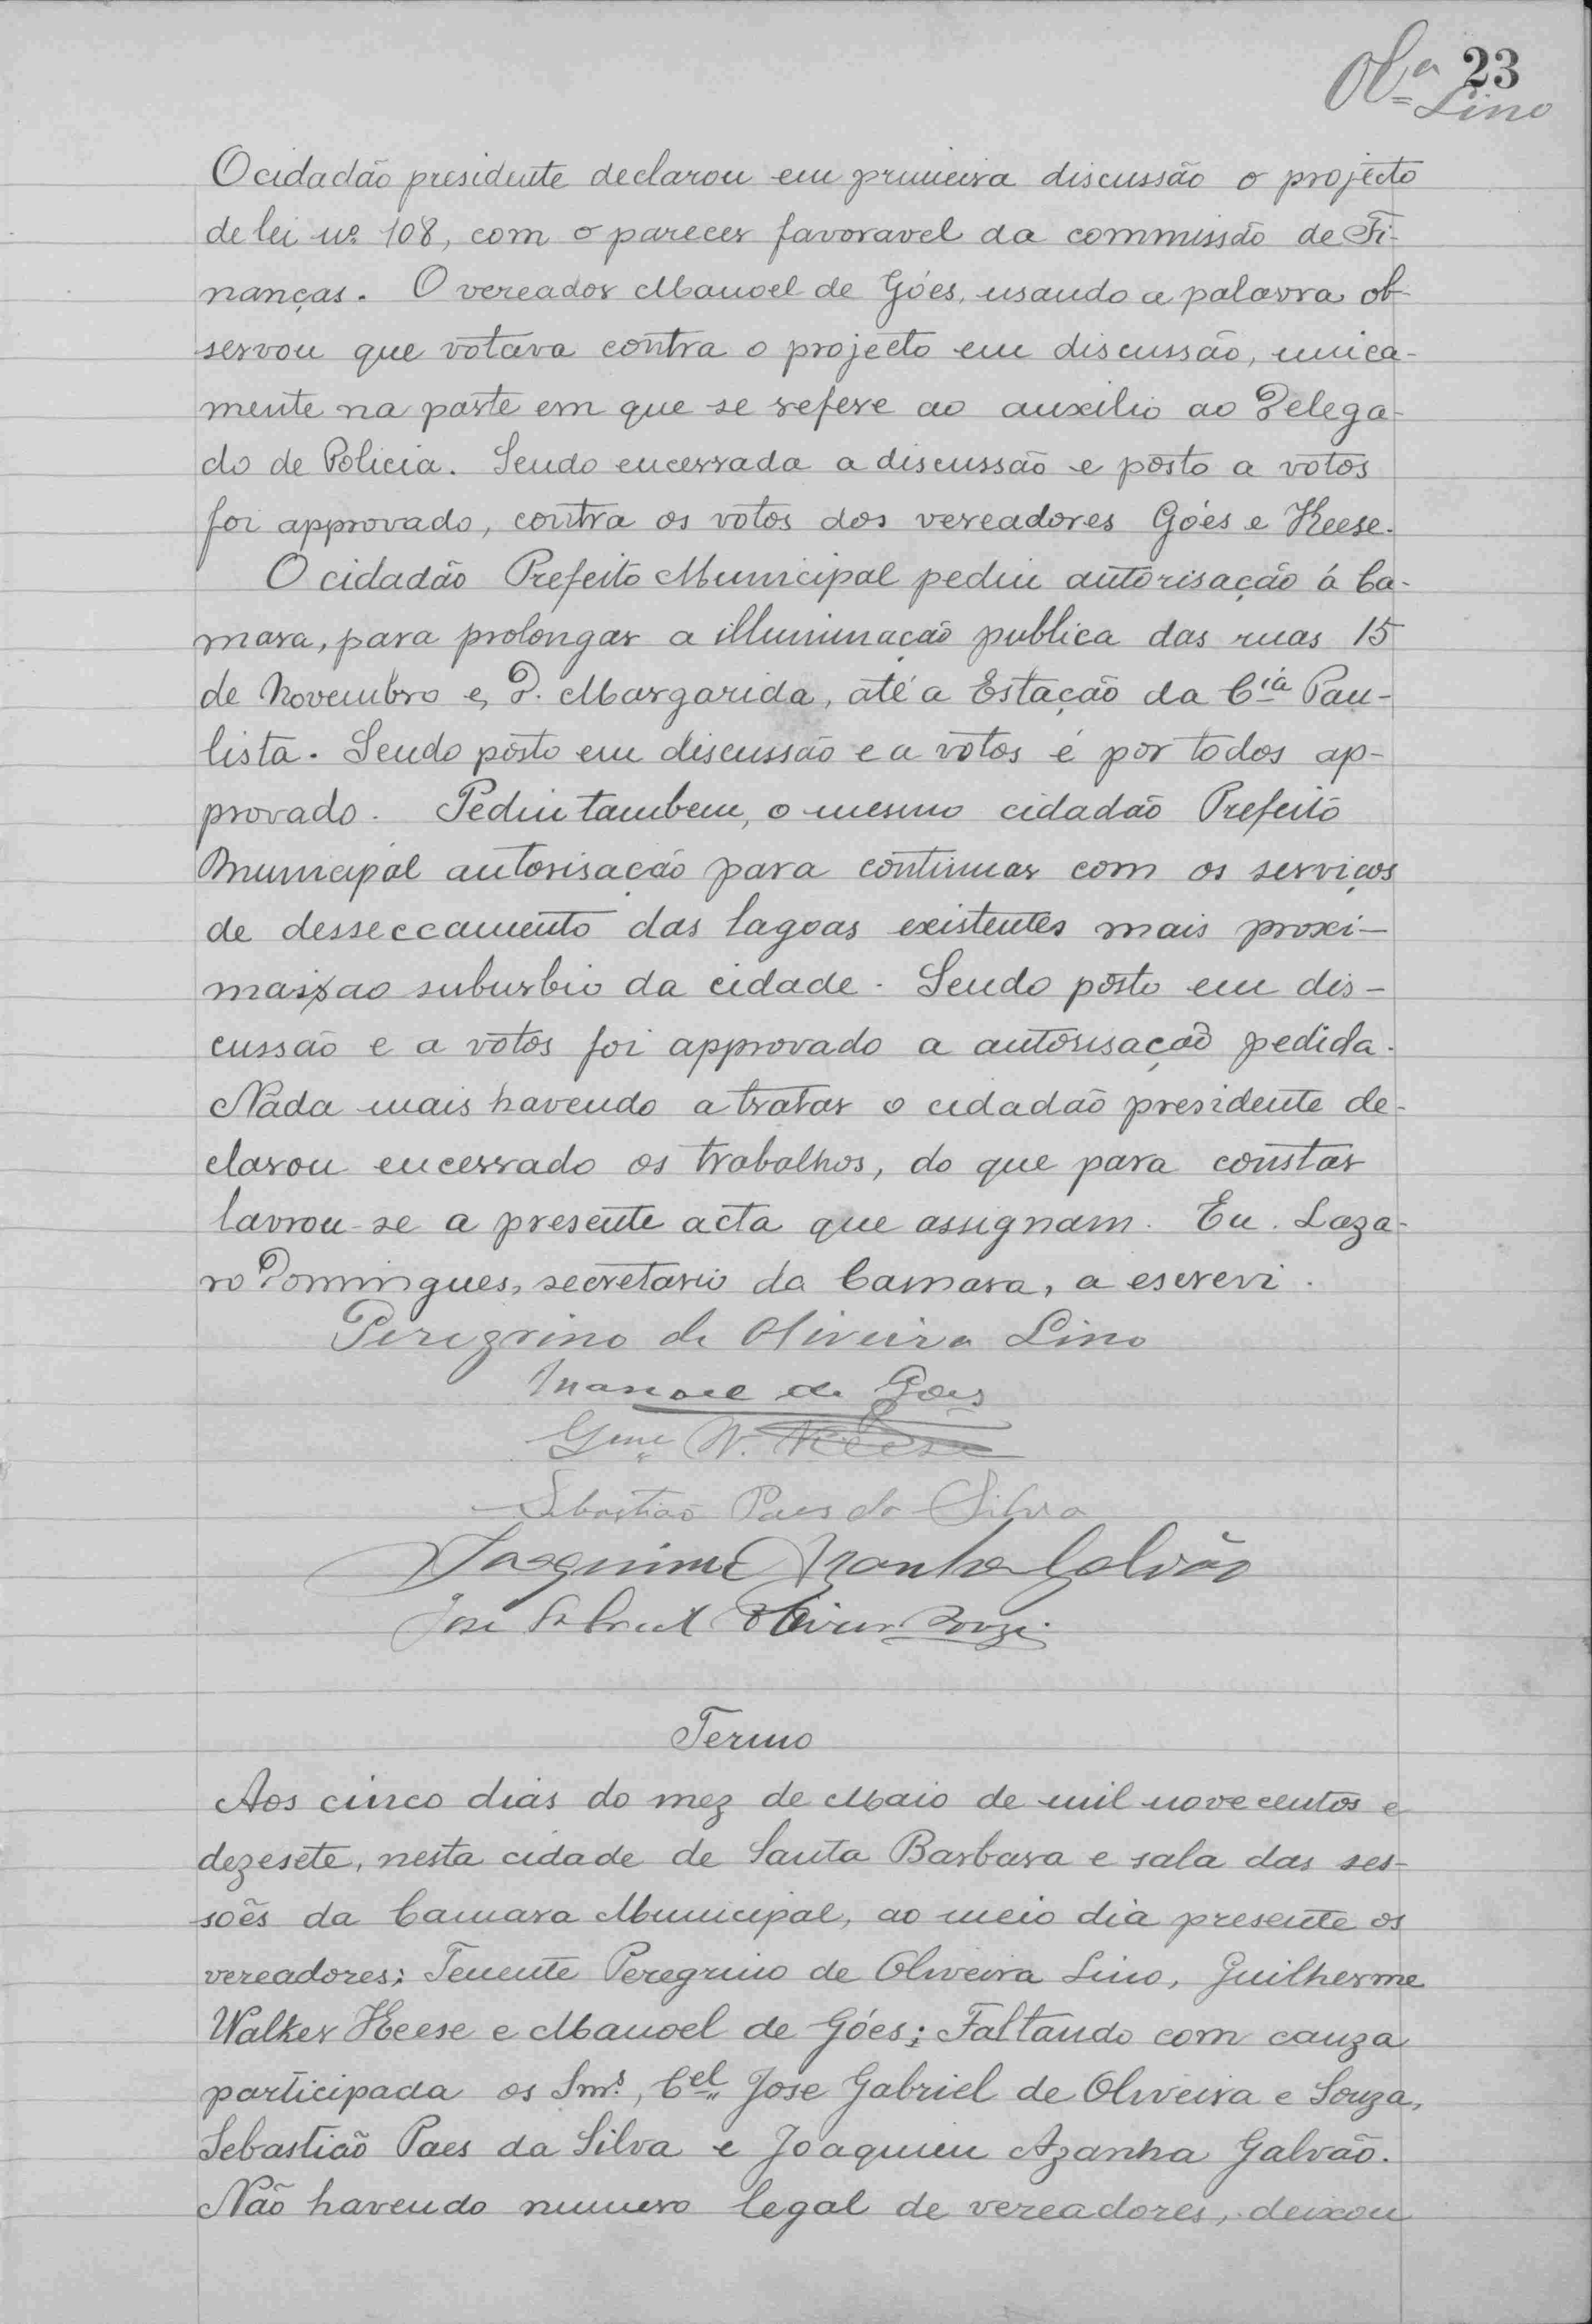 Olª 23
Lino
O cidadão presidente declarou em primeira discussão o projecto
de lei nº 108, com o parecer favoravel da commissão de Fi-
nanças. O vereador Manoel de Góes, usando a palavra ob-
servou que votava contra o projecto em discussão, unica-
mente na parte em que se refere ao auxilio ao Delega-
do de Policia. Sendo encerrada a discussão e posto a votos
foi approvado, contra os votos dos vereadores Góes e Keese.
O cidadão Prefeito Municipal pediu autorisação á Ca-
mara, para prolongar a illuminação publica das ruas 15
de Novembro e, D. Margarida, até a Estação da Cia Pau-
lista. Sendo posto em discussão e a votos é por todos ap-
provado. Pediu tambem, o mesmo cidadão Prefeito
Municipal autorisação para continuar com os serviços
de desseccamento das lagoas existentes mais proxi-
mais ao suburbio da cidade. Sendo posto em dis-
cussão e a votos foi approvado a autorisação pedida.
Nada mais havendo a tratar o cidadão presidente de-
clarou encerrado os trabalhos, do que para constar
lavrou-se a presente acta que assignam. Eu. Laza-
ro Domingues, secretario da Camara, a escrevi.
Peregrino de Oliveira Lino
Manoel de Goes
Gme W. Keese
Sebastião Paes da Silva
Joaquim Azanha Galvão
José Gabriel Oliveira Souza
Termo
Aos cinco dias do mez de Maio de mil nove centos e
dezesete, nesta cidade de Santa Barbara e sala das ses-
soẽs da Camara Municipal, ao meio dia presente os
vereadores: Tenente Peregrino de Oliveira Lino, Guilherme
Walker Keese e Manoel de Góes; Faltando com cauza
participada os Snrs., Cel Jose Gabriel de Oliveira e Souza,
Sebastião Paes da Silva e Joaquim Azanha Galvão.
Não havendo numero legal de vereadores, deixou